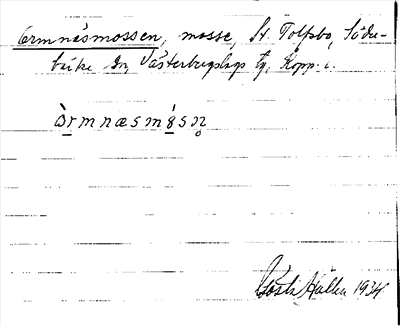 Ormnäsmossen, mosse, St. Tolfsbo, Söder-
bärke sn, Västerbergslags tg, Kopp. l.
ὰrmnæsmȣ́sn̥
Gösta Hallén 1934